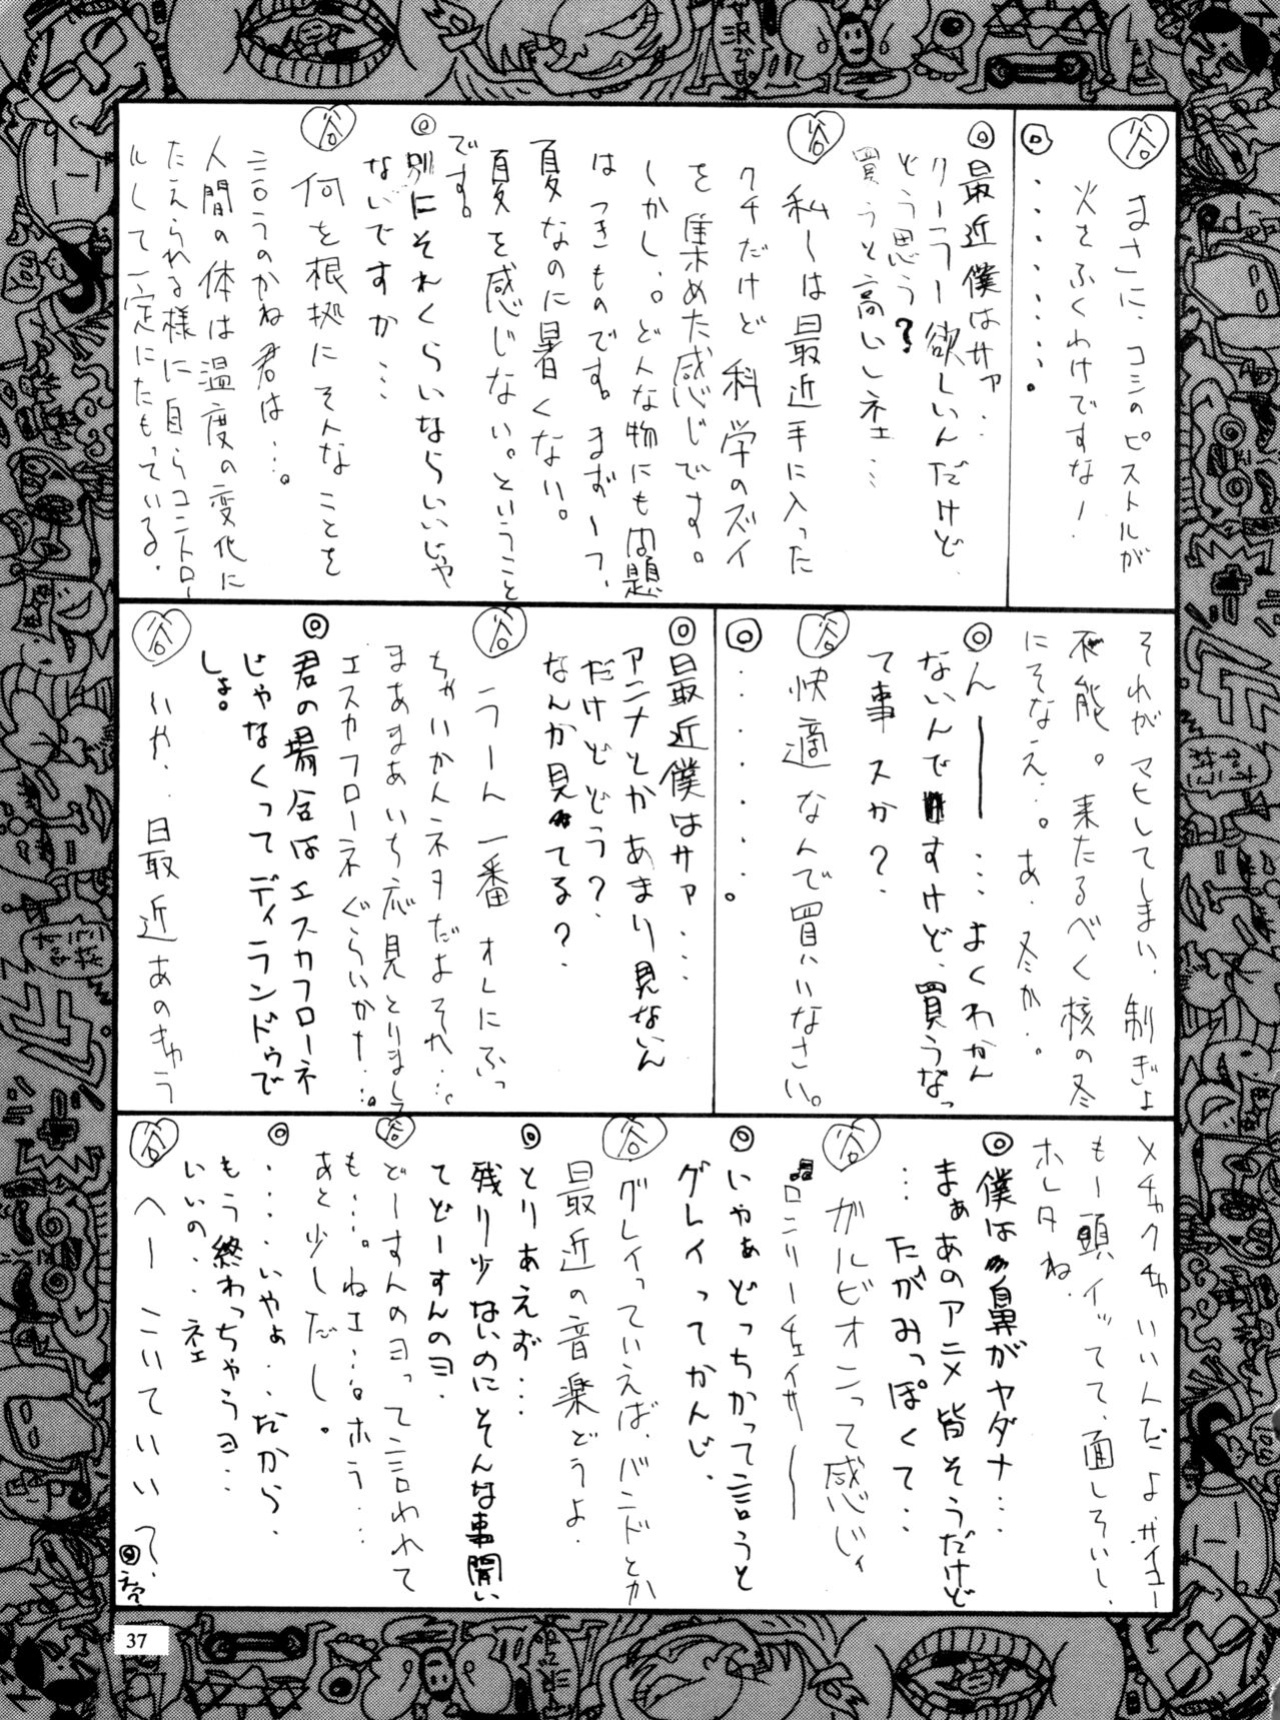 谷 まさに、コシのピストルが
火をふくわけですな！
◎・・・・・・・。
◎最近僕はサァ・・
クーラー欲しいんだけど
どう思う？
買うと高いしネェ…
谷 私〜は最近手に入った
クチだけど科学のズイ
を集めた感じです。
しかし。。どんな物にも問題
はつきものです。まず一つ、
夏なのに暑くない。
夏を感じない。ということ
です。
◎別にそれくらいならいいじゃ
ないですか…
谷 何を根拠にそんなことを
言うのかね君は…。
人間の体は温度の変化に
たえられる様に自らコントロー
ルして一定にたもっている。
それがマヒしてしまい、制ぎょ
不能。来たるべく核の冬
にそなえ・。あ・冬か・。
◎ん――…よくわかん
ないんですけど、買うなっ
て事スか？
谷 快適なんで買いなさい。
◎・・・・・・。
◎最近僕はサァ・・・
アニメとかあまり見ないん
だけどどう？
なんか見てる？
谷 うーん一番オレにふっ
ちゃいかんネタだよそれ・・。
まあまあいち応見とりまして
エスカフローネぐらいかナ・。
◎君の場合はエスカフローネ
じゃなくってディランドゥで
しょ。
谷 いや・最近あのきゅう
メチャクチャいいんだよ、サイコー
もー頭イッてて、面しろいし、
ホレタね
◎僕は鼻がヤダナ…
まぁあのアニメ皆そうだけど
…たがみっぽくて・・
谷 ガルビオンって感じィ
♬ロンリーチェイサー〜
◎いやぁどっちかって言うと
グレイってかんじ、
谷 グレイっていえば、バンドとか
最近の音楽どうよ・
◎とりあえず・・・
残り少ないのにそんな事聞い
てどーすんのヨ・
谷 どーすんのヨって言われて
も・・・。ねェ・・。ホラ・・・
あと少しだし。
◎・・・・いやぁ・・だから・
もう終わっちゃうヨ・・
いいの・・ネェ
谷 へー こいていい？・
37